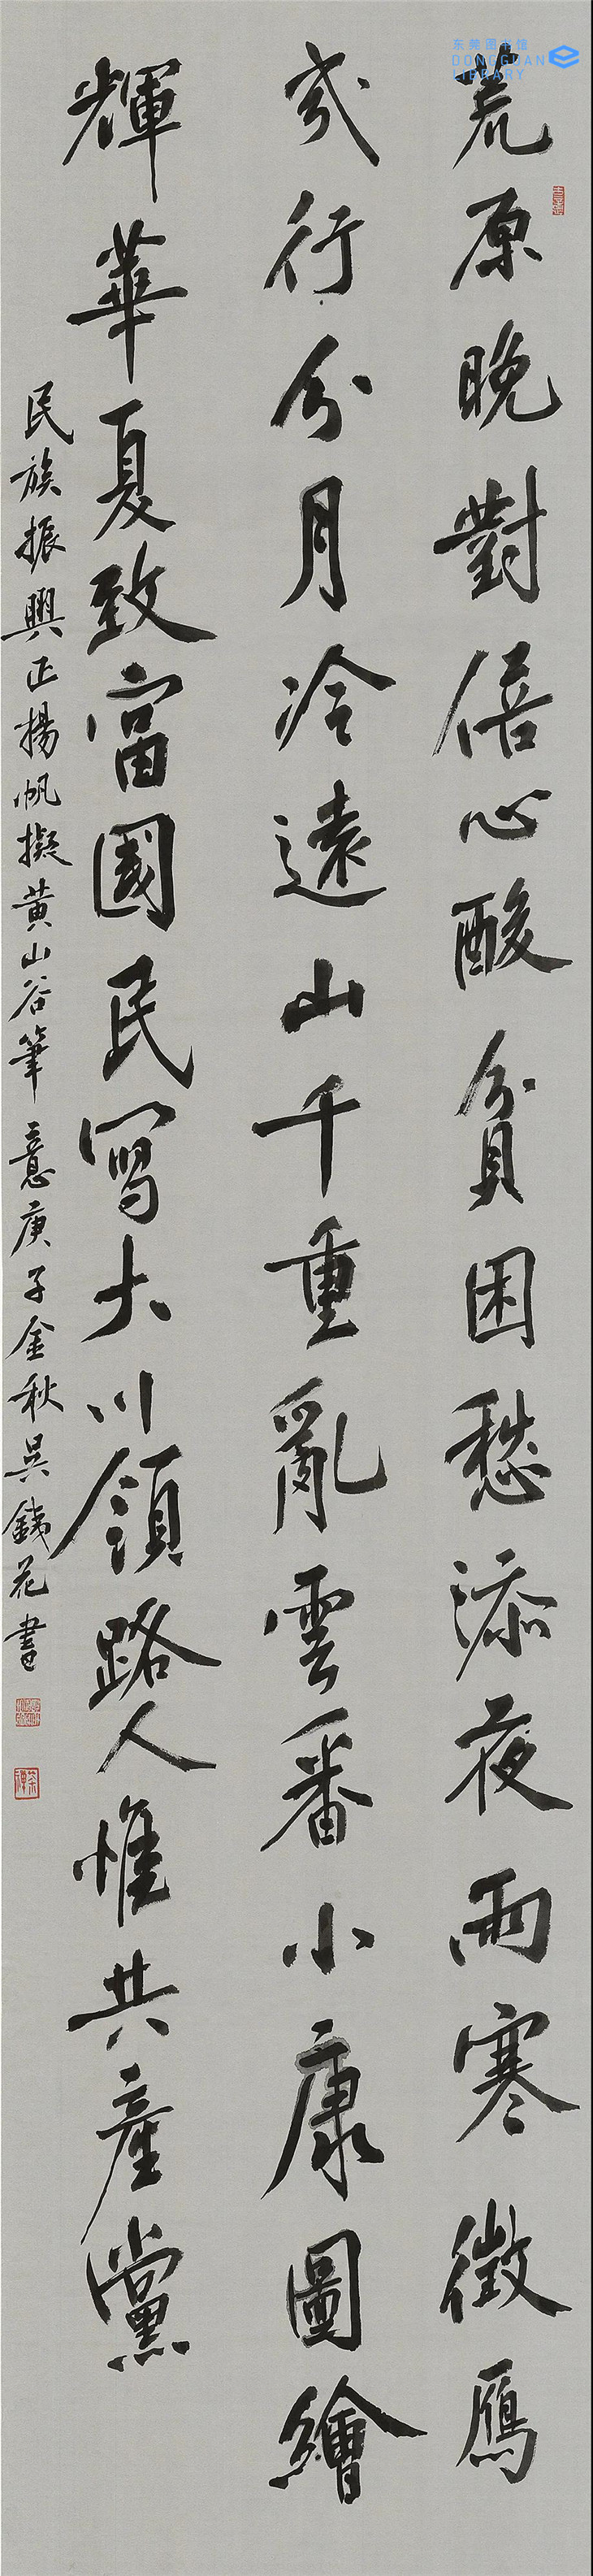 荒原晚對倍心酸貧困愁添夜雨寒徵鴈
幾行分月冷遠山千重亂雲番小康圖繪
輝華夏致富國民寫大川領路人惟共產黨
民族振興正揚帆擬黃山谷筆意庚子金秋吳錢花書
东莞图书馆
DONGGUAN
LIBRARY